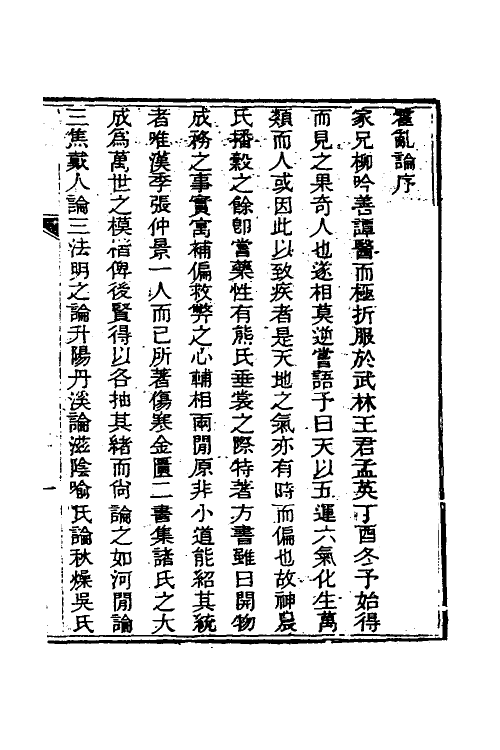 霍亂論序
家兄柳吟善譚醫而極折服於武林王君孟英丁酉冬予始得
而見之果奇人也遂相莫逆嘗語予曰天以五運六氣化生萬
類而人或因此以致疾者是天地之氣亦有時而偏也故神農
氏播穀之餘卽嘗藥性有熊氏垂裳之際特著方書雖曰開物
成務之事實寓補偏救弊之心輔相兩閒原非小道能紹其統
者唯漢季張仲景一人而已所著傷寒金匱二書集諸氏之大
成爲萬世之模楷俾後賢得以各抽其緒而尙論之如河閒論
三焦戴人論三法明之論升陽丹溪論滋陰喻氏論秋燥吳氏
一